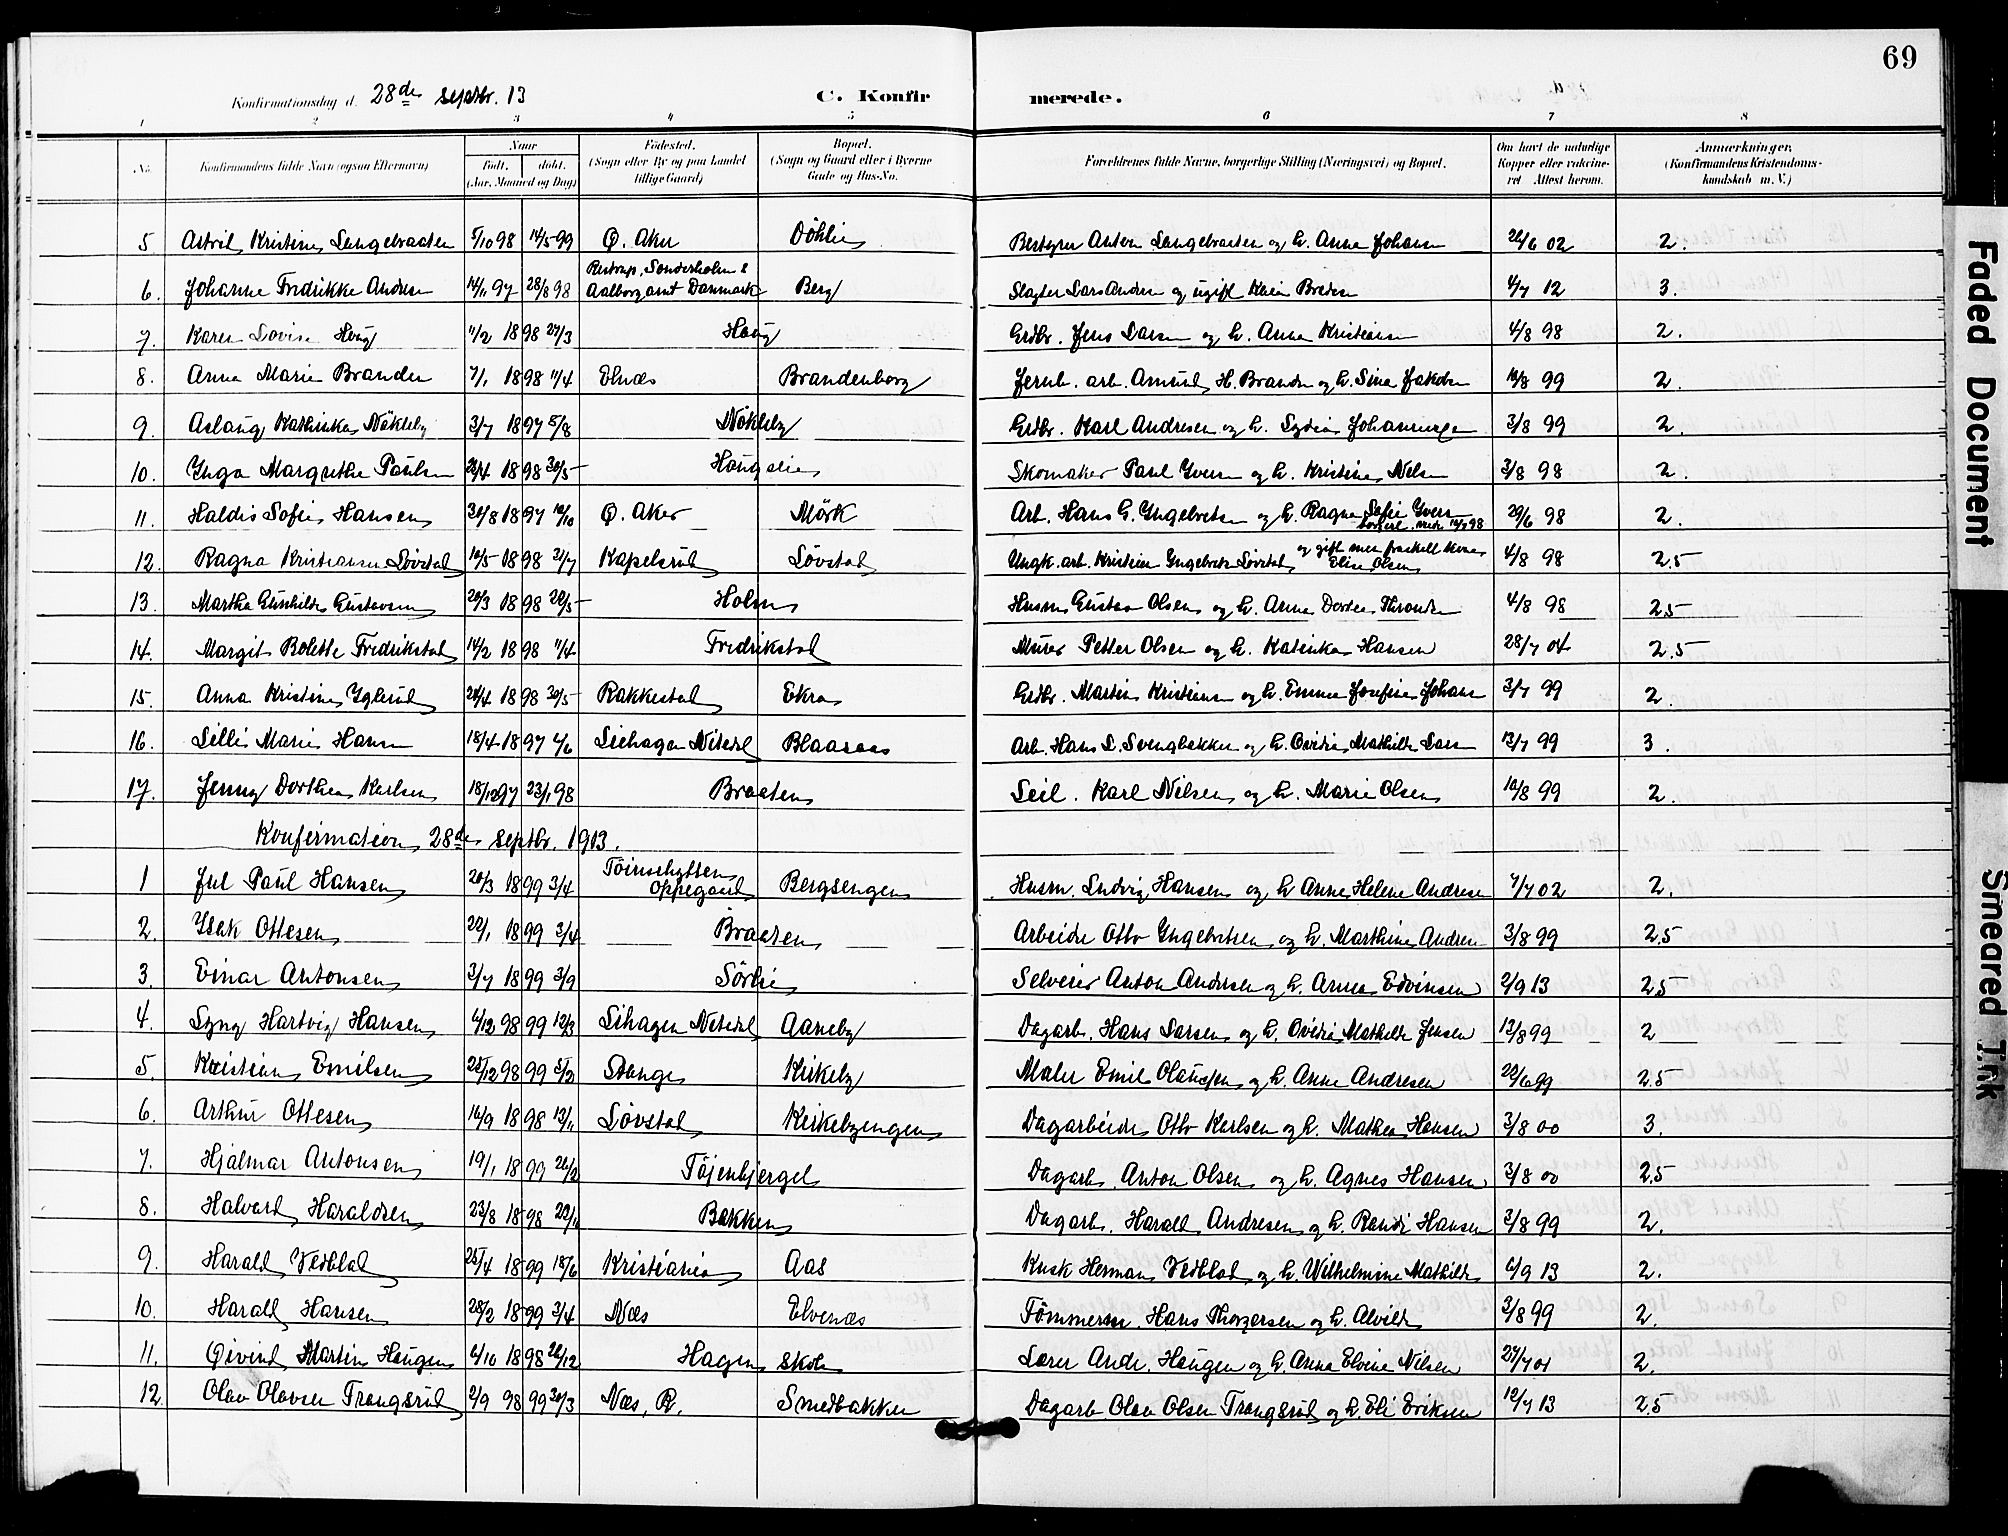 69
Konfirmationsdag d. 28de septbr. 13 C. Konfirmerede.
1 2 3 4 5 6 7 8
No. Konfirmandens fulde Navn (ogsaa Efternavn) Naar født. døbt. (Aar, Maaned og Dag) Fødested. (Sogn eller By og paa Landet tillige Gaard) Bopæl. (Sogn og Gaard eller i Byerne Gade og Hus-No. Forældrenes fulde Navne, borgerlige Stilling (Næringsvei) og Bopæl. Om havt de naturlige Kopper eller vaccineret Attest herom. Anmærkninger. (Konfirmandens Kristendomskundskab m. V.)
5 Astrid Kristine Langebraaten 5/10 98 14/5 99 Ø. Aker Döhlie Anton Langebraaten og h. Anna Johansen 26/6 02 2.
6. Johanne Fredrikke Andersen 14/11 97 28/8 98 Restrup, Sønderholm Aalborg amt Danmark Berg Slagter Lars Andersen og ugift Karen 4/7 12 3.
7. Karen Lovise Haug 11/2 1898 27/3 Haug Grdbr. Jens Larsen og h. Anna Kristiansen 4/8 98 2.
8. Anna Marie Brander 7/1 1898 11/4 Elnæs Brandenborg Jernb. arb. Amund H. Brander og h. Sina Jakobsen 10/8 99 2.
9. Aslaug Kathinka Nökleby 3/7 1897 5/8 Nökleby Grdbr. Karl Andresen og h. Lydia 3/8 99 2.
10. Inga Margrethe Paulsen 26/4 1898 30/5 Haugalien Skomaker Paul Iversen og h. Kristine Nilsen 3/8 98 2.
11. Haldis Sofie Hansen 30/8 1897 10/10 Ø. Aker Mörk Arb. Hans G. Yngebretsen og h. Ragna Sofie Iversen 29/6 98 2.
12. Ragna Kristiansen Lövstad 10/5 1898 31/7 Kapelsrud Lövstad Ungk. arb. Kristian Yngebretsen Lövstad og gift men fraskilt kone Elise Olsen 4/8 98 2.5
13. Martha Gunhilde Gustavsen 20/3 1898 20/5 Holm Husm. Gustav Olsen og h. Anna Dorthea Throndsen 4/8 98 2.5
14. Margit Bolette Fredrikstad 14/2 1898 11/4 Fredrikstad Murer Petter Olsen og h. Katinka Hansen 28/7 04 2.5
15. Anna Kristine Yglerud 24/4 1898 30/5 Rakkestad Ekra Grdbr. Martin Kristiansen og h. Emma Josefine Johansen 3/7 99 2.
16. Lilli Marie Hansen 18/4 1897 4/6 Liehagen Nitedal Blaaraas Arb. Hans L. Svengbakken og h. Ovidia Mathilde Larsen 13/7 99 3.
17. Jenny Dorthea Karlsen 18/12 97 23/1 98 Braaten Leil. Karl Nilsen og h. Marie Olsen 10/8 99 2.
Konfirmation 28de septbr. 1913.
1 Jul Paul Hansen 20/3 1899 3/4 Oppegaard Bergsengen Husm. Ludvig Hansen og h. Anne Helene Andresen 7/7 02 2.
2. Isak Ottesen 22/1 1899 3/4 Braaten Arbeider Otto Yngebretsen og h. Marthine Andresen 3/8 99 2.5
3. Einar Antonsen 3/7 1899 3/9 Sörlie Selveier Anton Andersen og h. Anna Edvinsen 2/9 13 2.5
4. Lyng Hartvig Hansen 6/12 98 99 12/3 Lihagen Nitedal Aaneby Dagarb. Hans Larsen og h. Ovidia Mathilde Jensen 13/8 99 2
5. Kristian Emilsen 25/12 98 99 5/2 Stange Kirkeby Maler Emil Olausen og h. Anne Andresen 22/6 99 2.5
6. Arthur Ottesen 16/9 1898 13/11 Lövstad Kirkebyengen Dagarbeider Otto Karlsen og h. Mathea Hansen 3/8 00 3.
7. Hjalmar Antonsen 19/1 1899 26/2 Töjenbjerget Dagarb. Anton Olsen og h. Agnes Hansen 3/8 00 2.5
8. Halvard Haraldsen 23/8 1898 22/11 Bakken Dagarb. Harald Andresen og h. Randi Hansen 3/8 99 2.
9. Harald Vedblad 25/4 1899 18/6 Kristiania Aas Kusk Herman Vedblad og h. Wilhelmine Mathilde 6/9 13 2.
10. Harald Hansen 28/2 1899 3/4 Næs Elvenæs Tömmerm. Hans Thorgersen og h. Alvilde 3/8 99 2.
11. Øivind Martin Haugen 6/10 1898 26/12 Hagen Skole Lærer Andr. Haugen og h. Anna Elvine Nilsen 27/7 01 2.
12. Olav Olavsen Trangsrud 2/9 98 99 30/3 Næs, R. Smedbakken Dagarb. Olav Olsen Trangsrud og h. Eli Eriksen 12/7 13 2.5
Faded Document
Smeared Ink